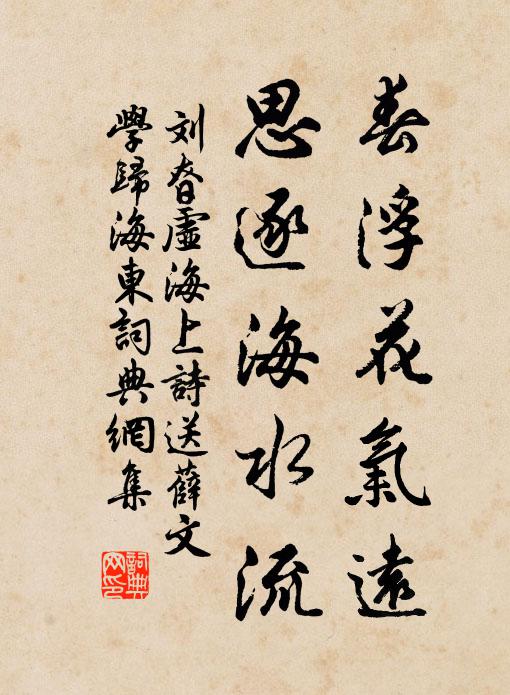 春浮花氣遠
思逐海水流
刘昚虛海上詩送薛文
學歸海東詞典網集
詞典
网印